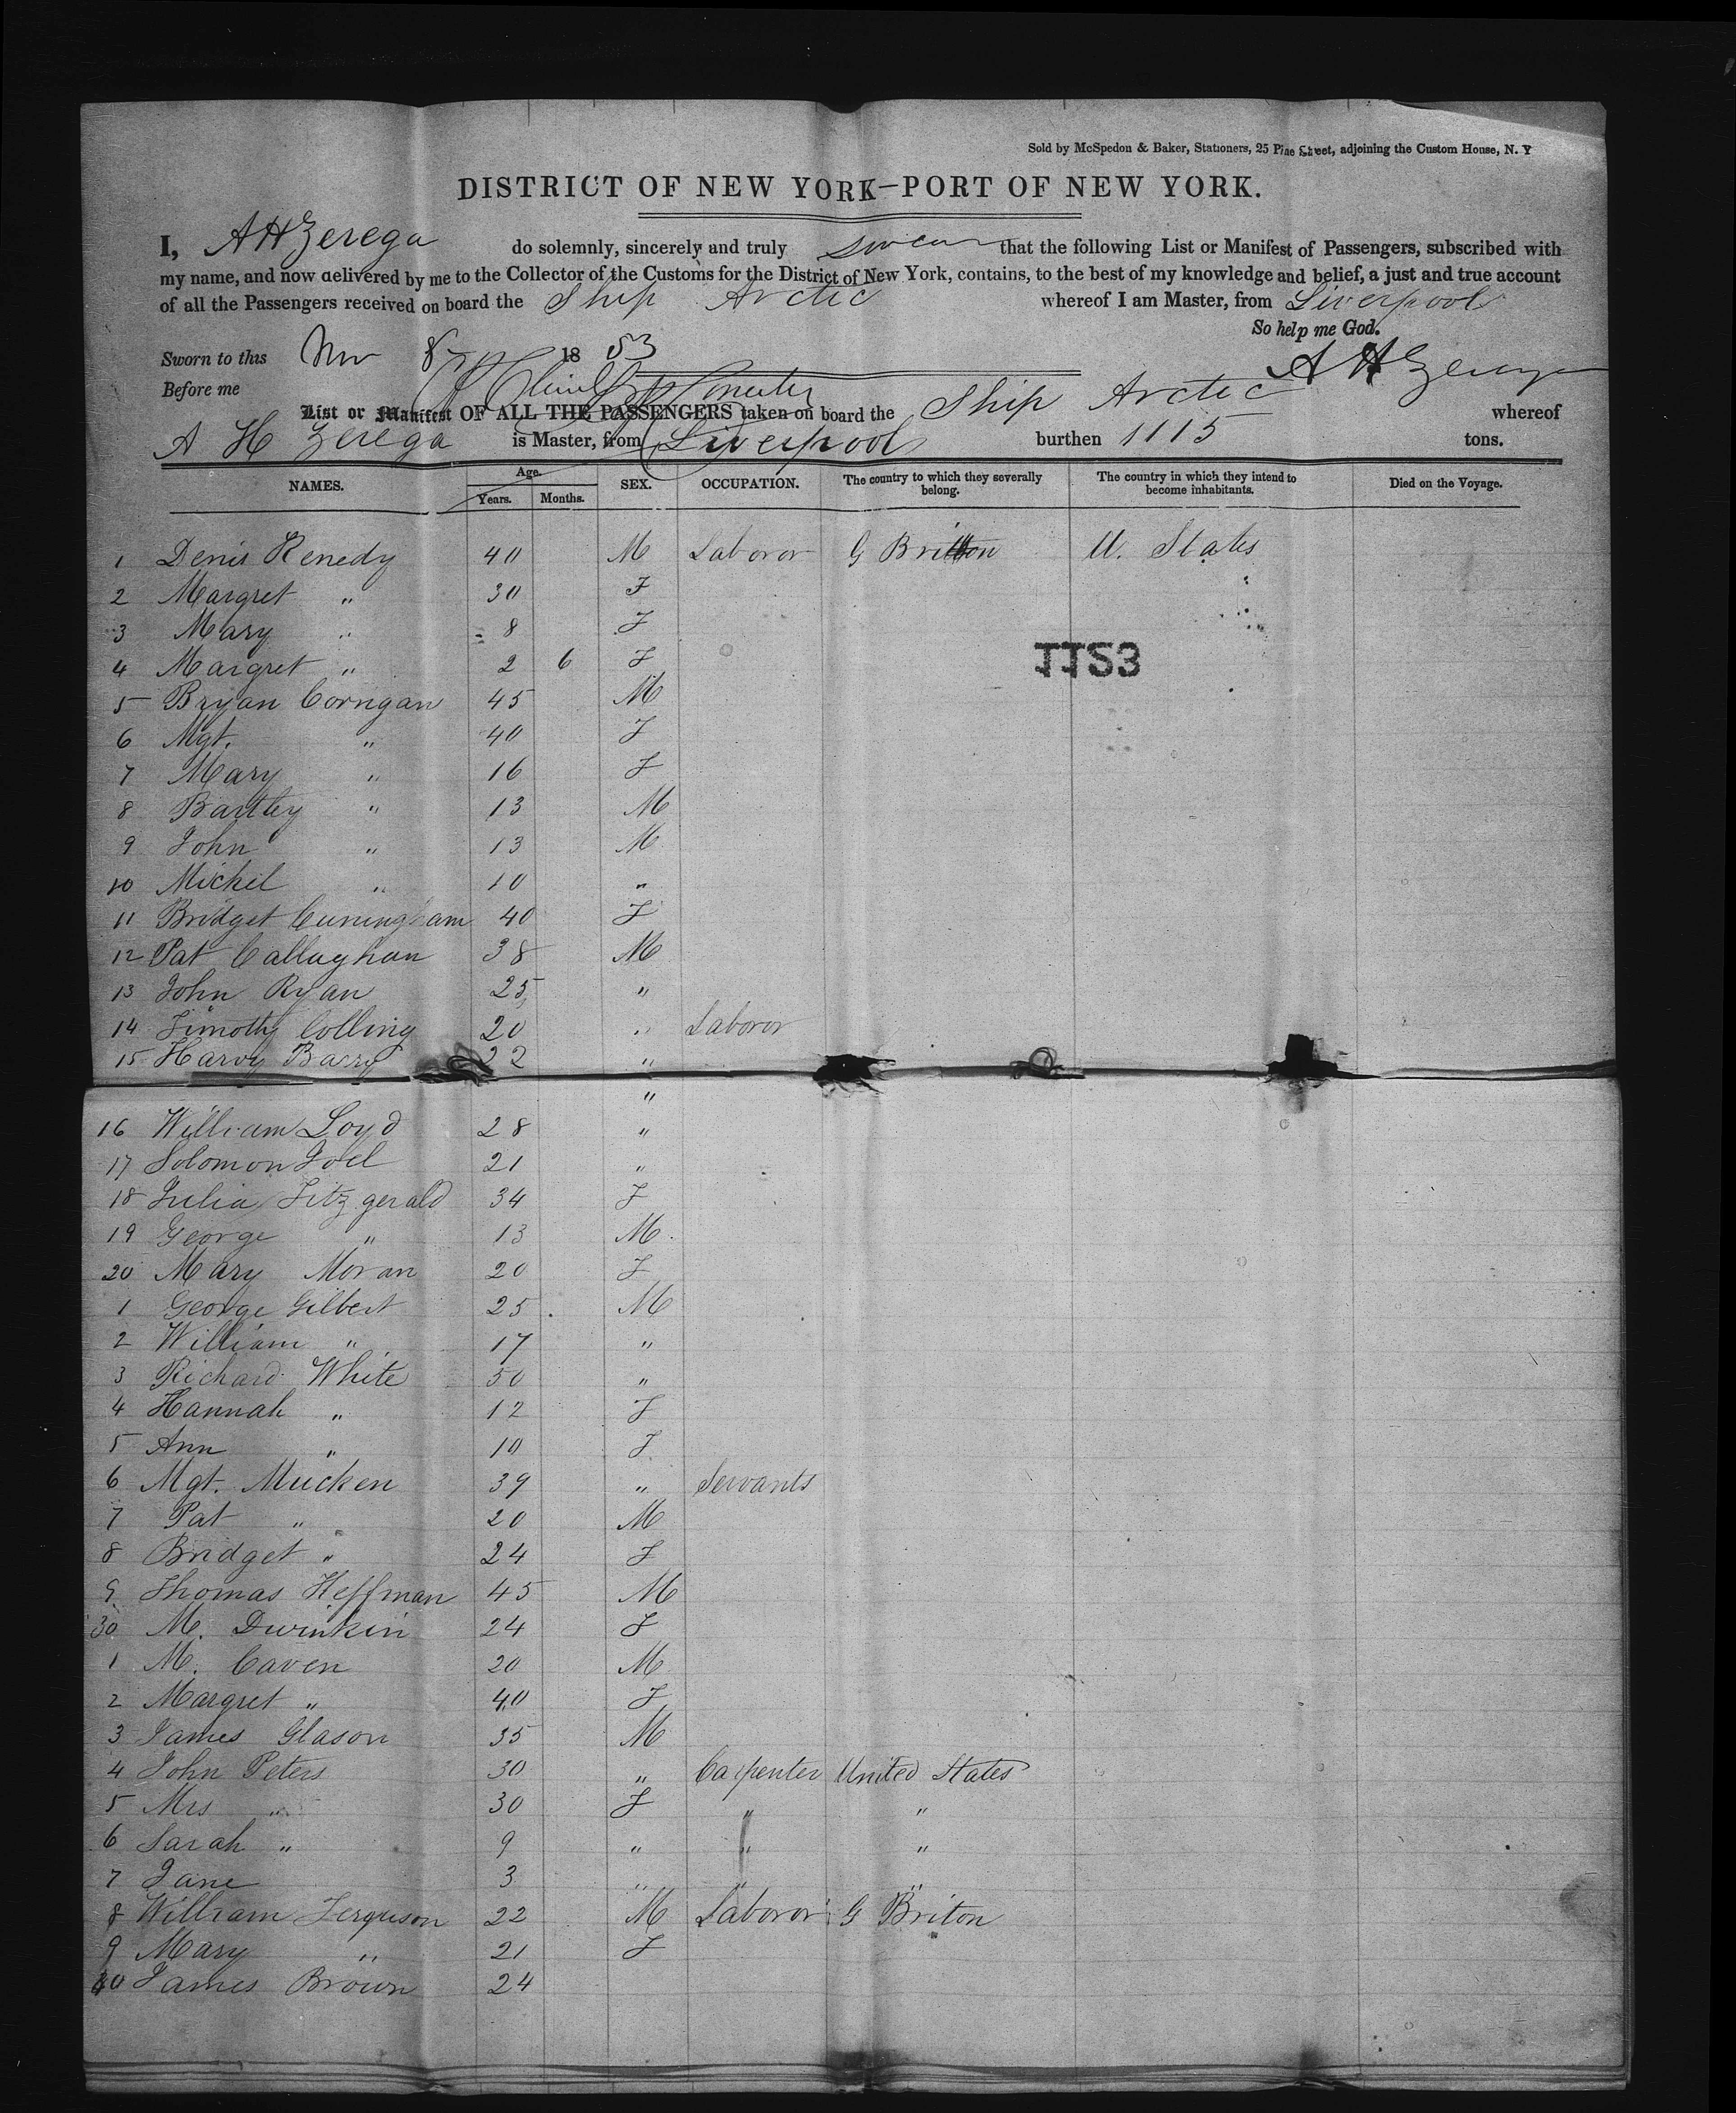 Sold by McSpedon & Baker, Stationers, 25 Pine Street, adjoining the Custom House, N. Y
DISTRICT OF NEW YORK—PORT OF NEW YORK.
I, A H Zerega do solemnly, sincerely and truly swear that the following List or Manifest of Passengers, subscribed with
my name, and now delivered by me to the Collector of the Customs for the District of New York, contains, to the best of my knowledge and belief, a just and true account
of all the Passengers received on board the Ship Arctic whereof I am Master, from Liverpool
So help me God.
Sworn to this Nov 8 1853 A H Zerega
Before me
List or Manifest OF ALL THE PASSENGERS taken on board the Ship Arctic whereof
A H Zerega is Master, from Liverpool burthen 1115 tons.
NAMES. Age. Years. Months. SEX. OCCUPATION. The country to which they severally belong. The country in which they intend to become inhabitants. Died on the Voyage.
1 Denis Kenedy 40 M Laboror G Britton U. States
2 Margret " 30 F
3 Mary " 8 F
1153
4 Margret " 2 6 F
5 Bryan Corrigan 45 M
6 Mgt. " 40 F
7 Mary " 16 F
8 Bartley " 13 M
9 John " 13 M
10 Mickel " 10 "
11 Bridget Cuningham 40 F
12 Pat Callaghan 38 M
13 John Ryan 25 "
14 Timothy Colling 20 " Laboror
15 Harvy Barry 22 "
"
16 William Loyd 28 "
17 Solomon Joel 21 "
18 Julia Fitzgerald 34 F
19 George " 13 M.
20 Mary Moran 20 F
1 George Gilbert 25 M
2 William " 17 "
3 Richard White 50 "
4 Hannah " 12 F
5 Ann " 10 F
6 Mgt. Mucken 39 " Servants
7 Pat " 20 M
8 Bridget " 24 F
9 Thomas Heffman 45 M
30 M. Dwinkin 24 F
1 M. Caven 20 M
2 Margret " 40 F
3 James Glason 35 M
4 John Peters 30 " Carpenter United States
5 Mrs " 30 F " "
6 Sarah " 9 " " "
7 Jane 3 " " "
8 William Ferguson 22 M Laboror G Briton
9 Mary " 21 F
40 James Brown 24